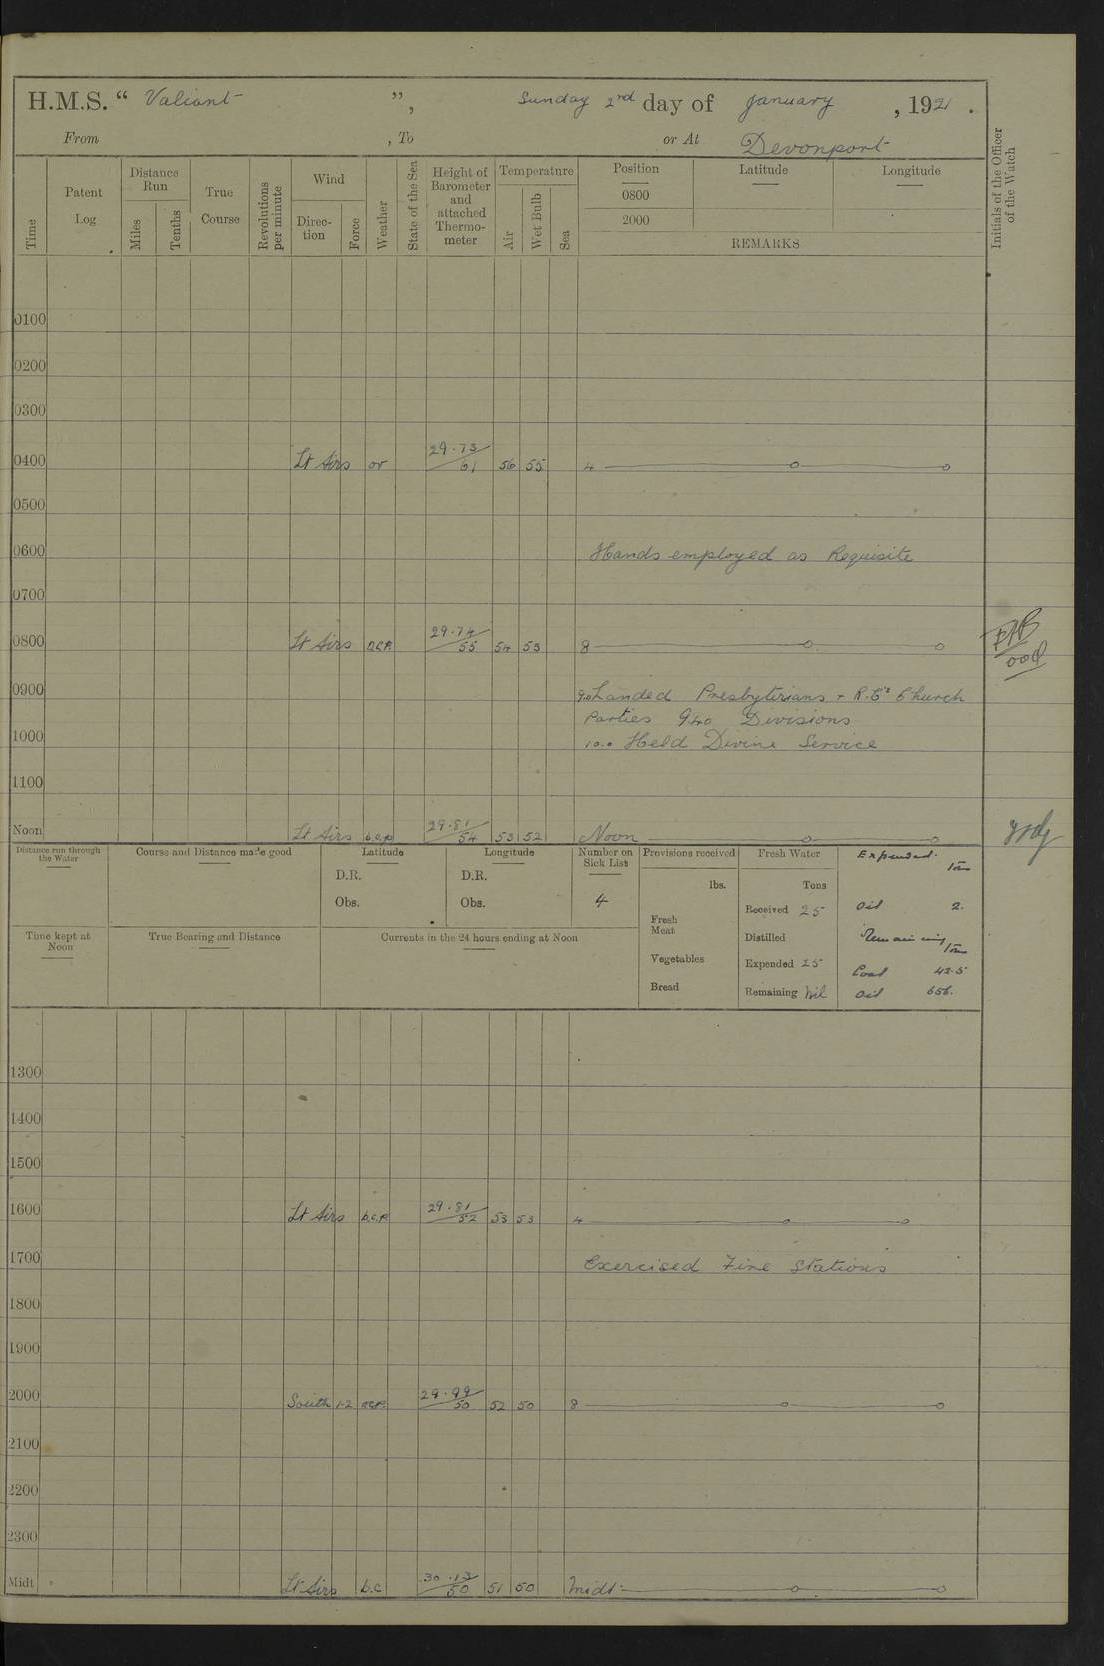 H.M.S. “ Valiant ”, Sunday 2nd day of January, 1921.
From , To or At Devonport
Time
Patent Log
Distance Run
Miles
Tenths
True Course
Revolutions per minute
Wind
Direction
Force
Weather
State of the Sea
Height of Barometer and attached Thermometer
Temperature
Air
Wet Bulb
Sea
Position Latitude Longitude
0800
2000
REMARKS
Initials of the Officer of the Watch
0100
0200
0300
0400 Lt Airs or 29.73/61 56 55 4
0500
0600 Hands employed as Requisite
0700
0800 Lt Airs 29.74/55 54 53 8
0900 9.0 Landed Presbyterians + R.C's Church
Parties 940 Divisions
1000 10.0 Held Divine Service
1100
Noon Lt Airs b.c.p 29.81/54 53 52 Noon
Distance run through the Water
Course and Distance made good
Latitude
D.R.
Obs.
Longitude
D.R.
Obs.
Number on Sick List
4
Provisions received
lbs.
Fresh Meat
Vegetables
Bread
Fresh Water
Tons
Received 25
Distilled
Expended 25
Remaining Nil
Expended.
Tons
Oil 2.
Remaining
Tons
Coal 42.5
Oil 656.
Time kept at Noon
True Bearing and Distance
Currents in the 24 hours ending at Noon
1300
1400
1500
1600 Lt Airs b.c.p. 29.81/52 53 53 4
1700 Exercised Fire Stations
1800
1900
2000 South 1-2 29.99/50 52 50 8
2100
2200
2300
Midt Lt Airs b.c 30.13/50 51 50 Midt